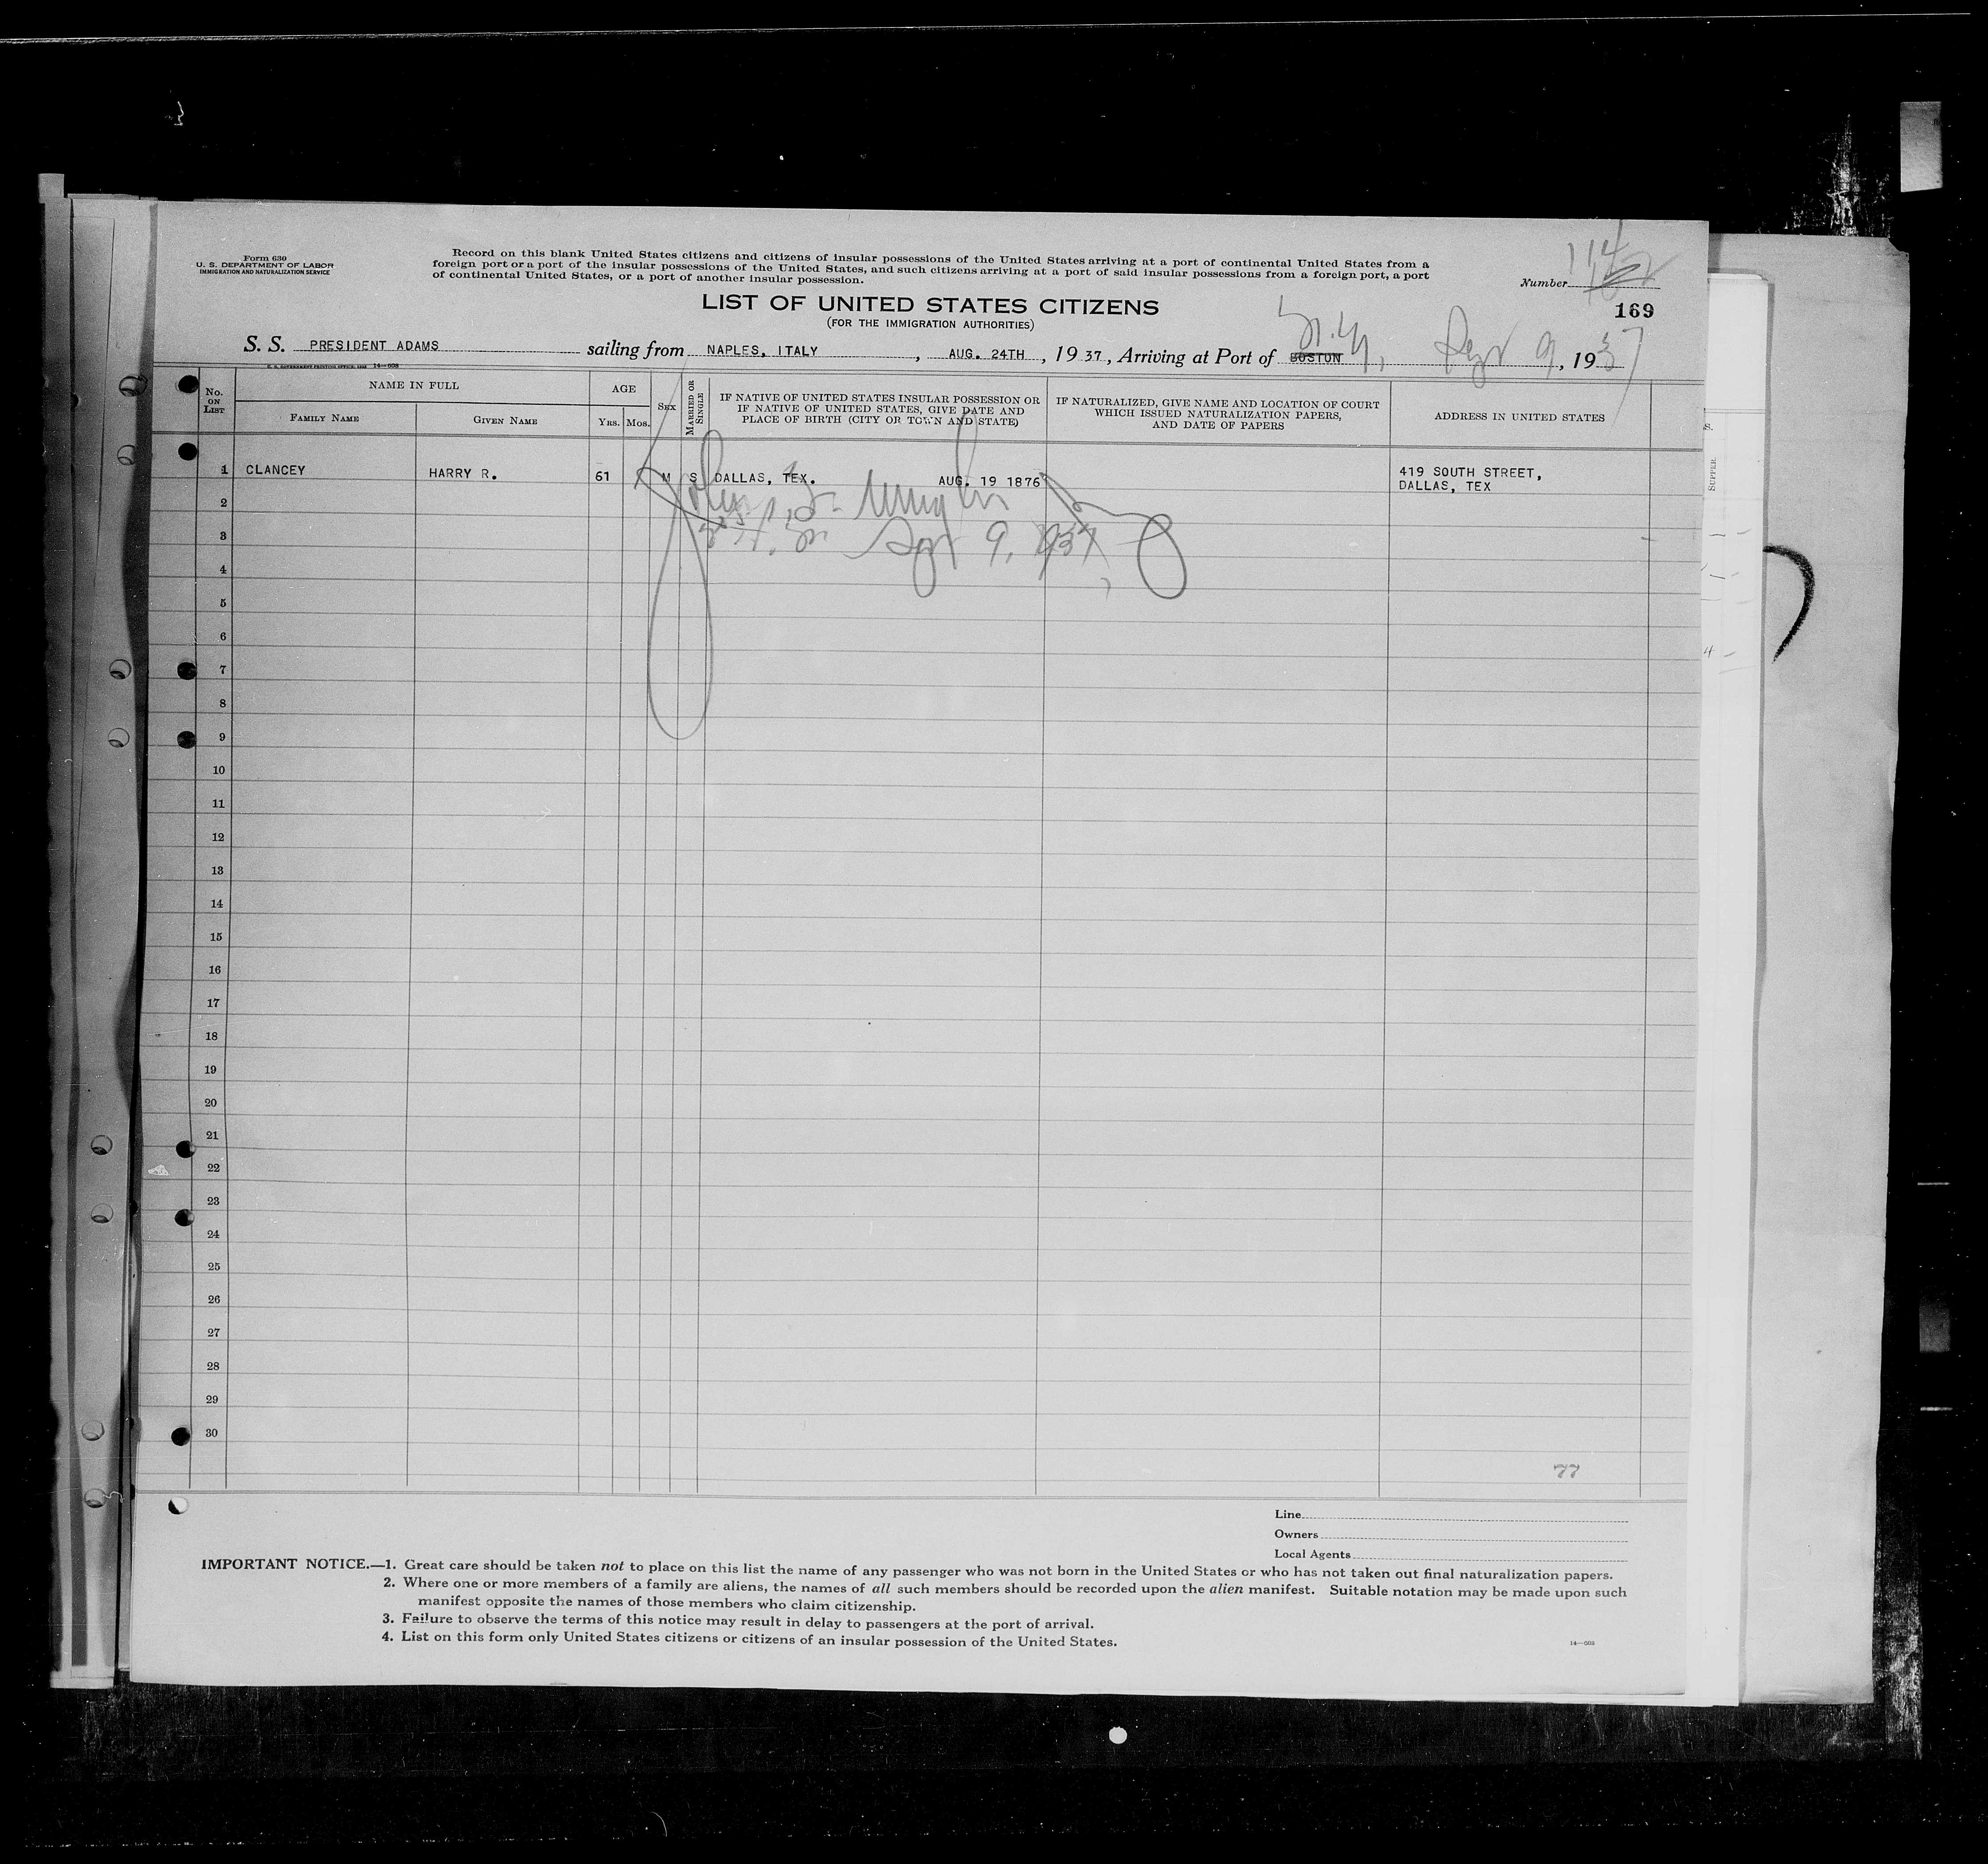 Form 630
U. S. DEPARTMENT OF LABOR
IMMIGRATION AND NATURALIZATION SERVICE
Record on this blank United States citizens and citizens of insular possessions of the United States arriving at a port of continental United States from a
foreign port or a port of the insular possessions of the United States, and such citizens arriving at a port of said insular possessions from a foreign port, a port
of continental United States, or a port of another insular possession.
Number
169
LIST OF UNITED STATES CITIZENS
(FOR THE IMMIGRATION AUTHORITIES)
S. S. PRESIDENT ADAMS sailing from NAPLES, ITALY, AUG. 24TH, 1937, Arriving at Port of BOSTON N.Y., Sept 9, 1937
No. ON LIST
NAME IN FULL
FAMILY NAME
GIVEN NAME
AGE
YRS. MOS.
SEX
MARRIED OR SINGLE
IF NATIVE OF UNITED STATES INSULAR POSSESSION OR
IF NATIVE OF UNITED STATES, GIVE DATE AND
PLACE OF BIRTH (CITY OR TOWN AND STATE)
IF NATURALIZED, GIVE NAME AND LOCATION OF COURT
WHICH ISSUED NATURALIZATION PAPERS,
AND DATE OF PAPERS
ADDRESS IN UNITED STATES
1 CLANCEY HARRY R. 61 M S DALLAS, TEX. AUG. 19 1876 419 SOUTH STREET,
DALLAS, TEX
2
3 Sept 9, 1937
4
5
6
7
8
9
10
11
12
13
14
15
16
17
18
19
20
21
22
23
24
25
26
27
28
29
30
77
Line
Owners
Local Agents
IMPORTANT NOTICE.—1. Great care should be taken not to place on this list the name of any passenger who was not born in the United States or who has not taken out final naturalization papers.
2. Where one or more members of a family are aliens, the names of all such members should be recorded upon the alien manifest. Suitable notation may be made upon such
manifest opposite the names of those members who claim citizenship.
3. Failure to observe the terms of this notice may result in delay to passengers at the port of arrival.
4. List on this form only United States citizens or citizens of an insular possession of the United States.
14—608
SUPPER